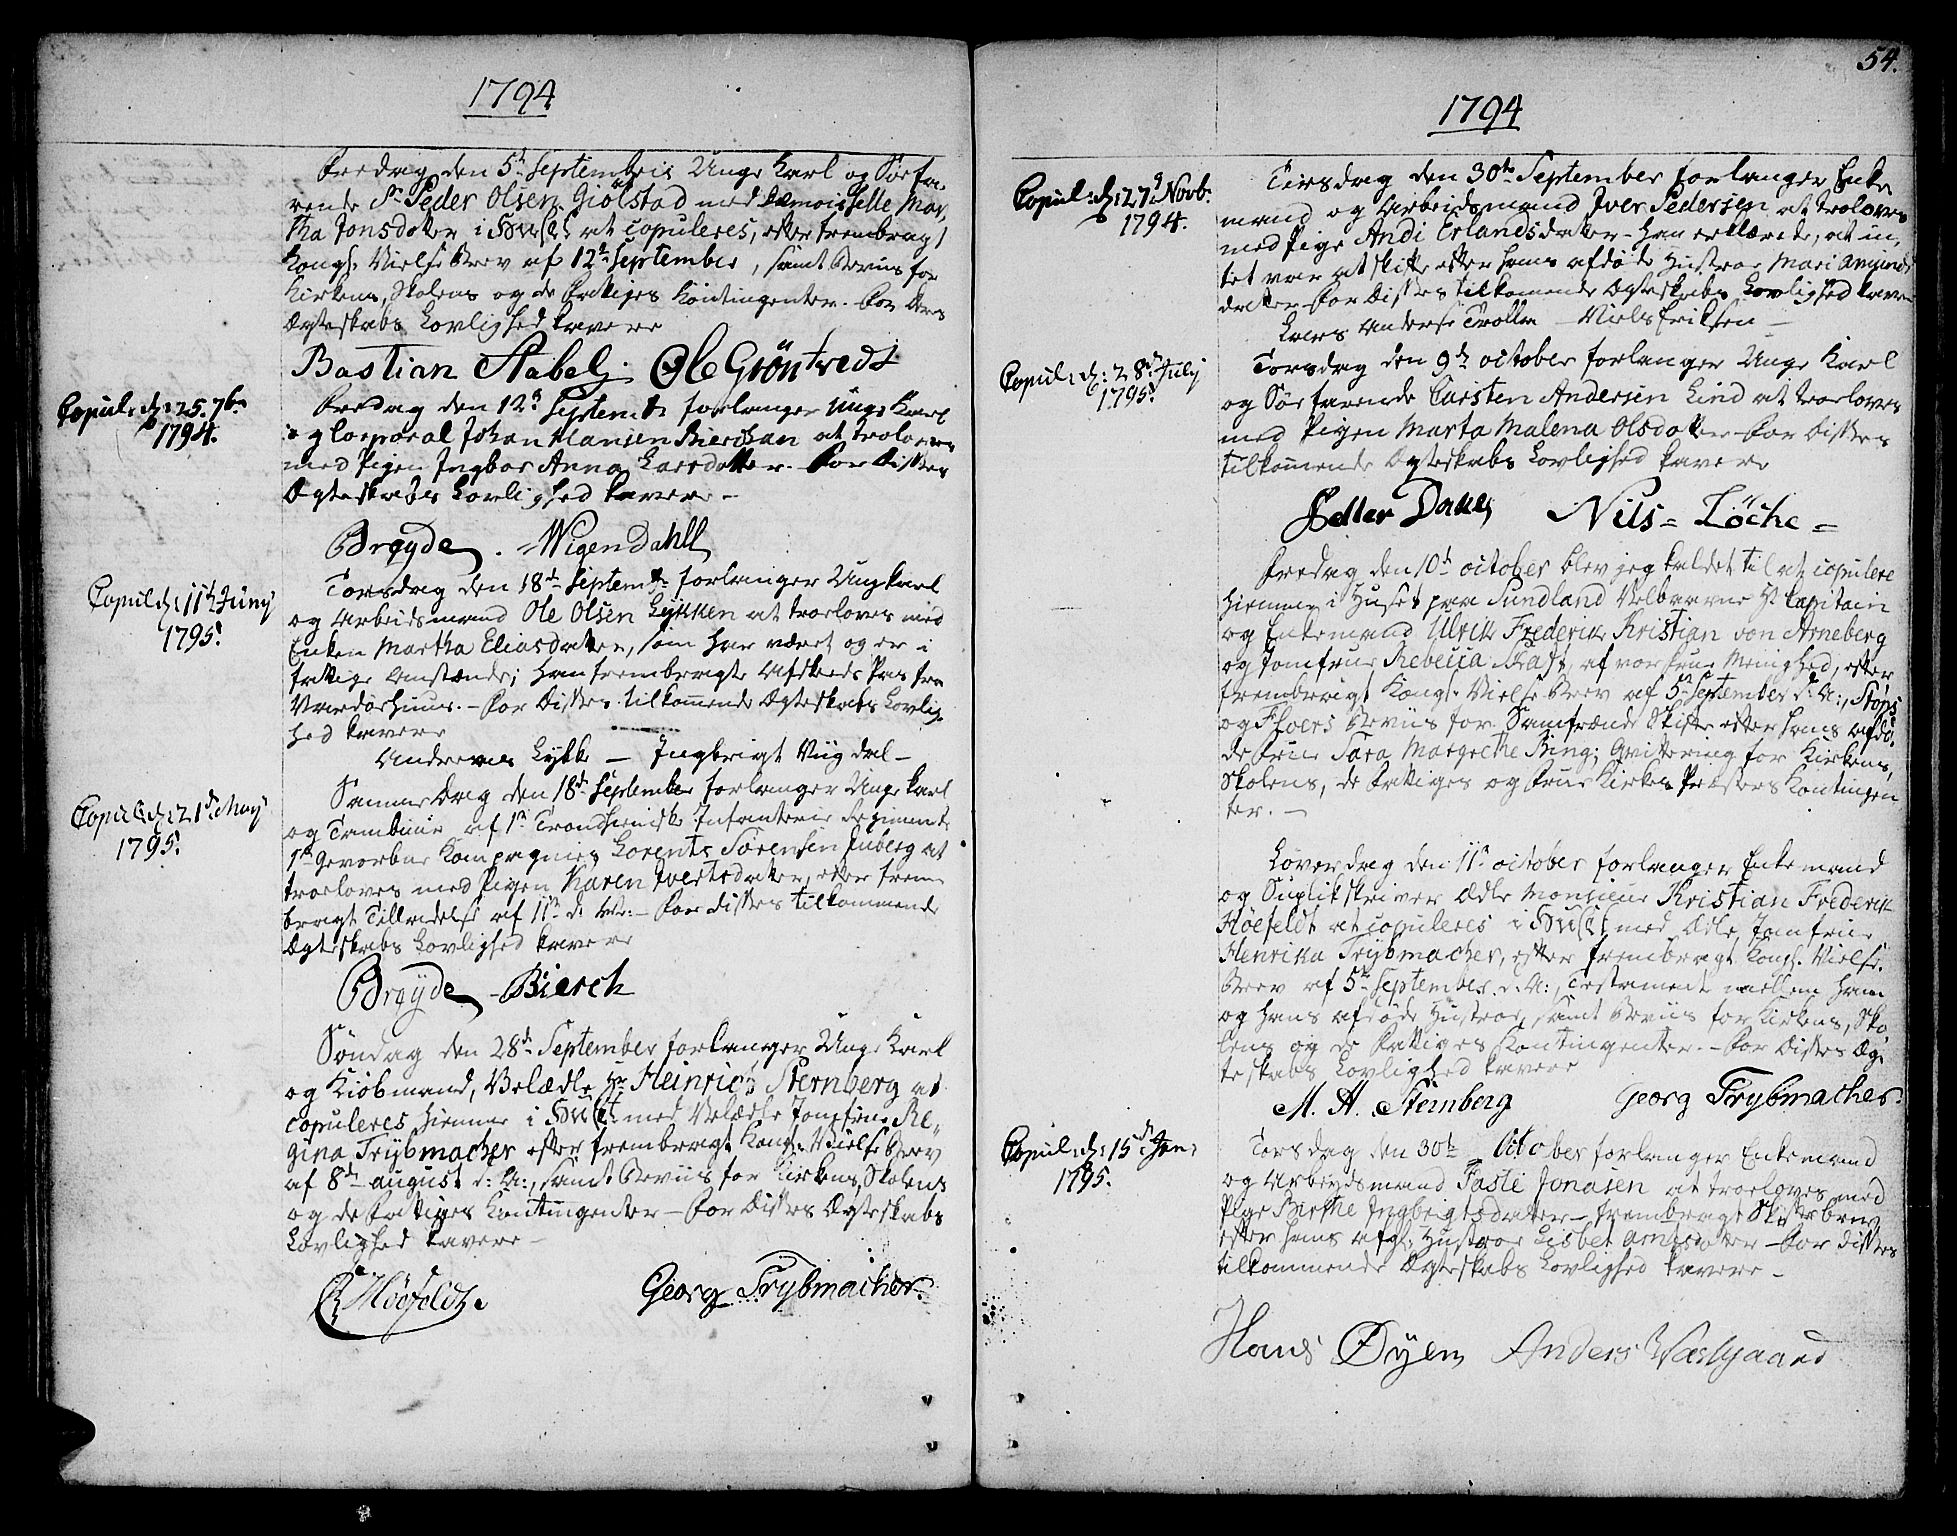 1794
Fredag den 5t Septembris Unge Karl og Søefa-
rende Sr Peder Olsen Giølstad med Demoiselle Mar,
tha Jonsdatter i Huset at copuleres, efter frembragt
Kongl. Vielse Brev af 12te September, samt Beviis for
Kirkens, Skolens og de Fattiges Contingenter. For deres
Ægteskabs Lovlighed cavere
Bastian Stabel. Ole Gröntvedt
Copul: d: 25. 7br
1794.
Fredag den 12te Septembr forlanger Unge Karl
og Corporal Johan Hansen Bierchan at troloves
med Pigen Ingbor Anna Larsdatter. For Disses
Ægteskabes Lovlighed cavere.-
Brøyde. Wigen Dahll
Copul d: 11t Junj
1795.
Torsdag den 18de Septembr forlanger Ungkarl
og Arbeidsmand Ole Olsen Lykken at troeloves med
Enken Martha Eliasdatter, som har været og er i
fattige Omstænder; Han frembragte Afskeeds Pas fra
Vardøehuus.- For Disses tilkommende Ægteskabs Lovlig-
hed cavere
Andreas Lykke - Ingbrigt Viigdal-
Copul d: 21de Maÿ
1795.
Samme Dag den 18de September forlanger Unge Karl
og Tambuur af 1te Trondhiemske Infanterie Regiments
1te Gevorbne Kompagnies Lorents Sørensen Inberg at
troeloves med Pigen Karen Ivertsdatter, efter frem-
bragt Tilladelse af 11te d. M:- For disses tilkommende
Ægteskabs Lovlighed cavere
Brøyde - Bierch
Søndag den 28de September forlanger Unge Karl
og Kiøbmand, Velædle Hr Heinrich Sternberg at
copuleres hiemme i Huset med Velædle Jomfrue Re,,
gina Trÿbmacher efter frembragt Kongl. Vielse Brev
af 8de august d: A:, samt Beviis for Kirkens, Skolens
og de Fattiges Contingenter - For Disses Ægteskabs
Lovlighed cavere -
Höefeldt. Georg Trÿbmacher.
54.
1794
Copul: d: 27de Novb.
1794.
Tirsdag den 30te September forlanger Enke
mand og Arbeidsmand Iver Pedersen at troloves
med Pige Andi Erlandsdatter - Han erklærede, at in,
tet var at skifte efter hans afdøde Hustroe Mari Amunds
datter. For Disses tilkomende Ægteskabs Lovlighed cavere
Lars Anderse Trolla - Niels Eriksen -
Copul: d: 28de Julij
1795.
Torsdag den 9de october forlanger Unge Karl
og Søefarende Carsten Andersen Lind at troeloves
med Pigen Marta Malena Olsdatter - For Disses
tilkommende Ægteskabs Lovlighed cavere
Petter Dahl Nils = Löche =
Fredag den 10de october blev jeg kaldet til at copulere
hiemme i Huset paa Sundland Velbaarne Hr Capitain
og Enkemand Ulrik Frederik Kristian von Arneberg
og Jomfrue Rebecca Fast, af vor frue Menighed, efter
frembragt Kongl. Vielse Brev af 5te September d: A:, Stops
og Floers Beviis for Samfrænde Skifte efter hans afdø,
de Frue Sara Margrethe Bing; Qvittering for Kirkens,
Skolens, de Fattiges og Frue Kirkes Præsters Kontingen
ter. -
Løverdag den 11te october forlanger Enkemand
og Suplikskriver Ædle Monsieur Kristian Frederik
Höefeldt at copuleres i Huset med Ædle Jomfrue
Henrika Trÿbmacher, efter frembragt Kongl. Vielse-
Brev af 5te September. d: A:, Testamente mellem ham
og hans afdøde Hustroe, samt Beviis for Kirkens, Sko
lens og de Fattiges Kontingenter. - For Disses Æg-
teskabs Lovlighed cavere
M. H. Sternberg Georg Trÿbmacher.
Copul: d: 15de Jan:
1795.
Torsdag den 30te October forlanger Enkemand
og Arbeydsmand Faste Jonasen at troeloves med
Pige Birthe Ingbrigtsdatter - frembragt Skiftebrev
efter hans afgl: Hustroe Lisbet Arntsdatter - For disses
tilkommende Ægteskabs Lovlighed cavere -
Hans Øyen Anders Wæsgaard